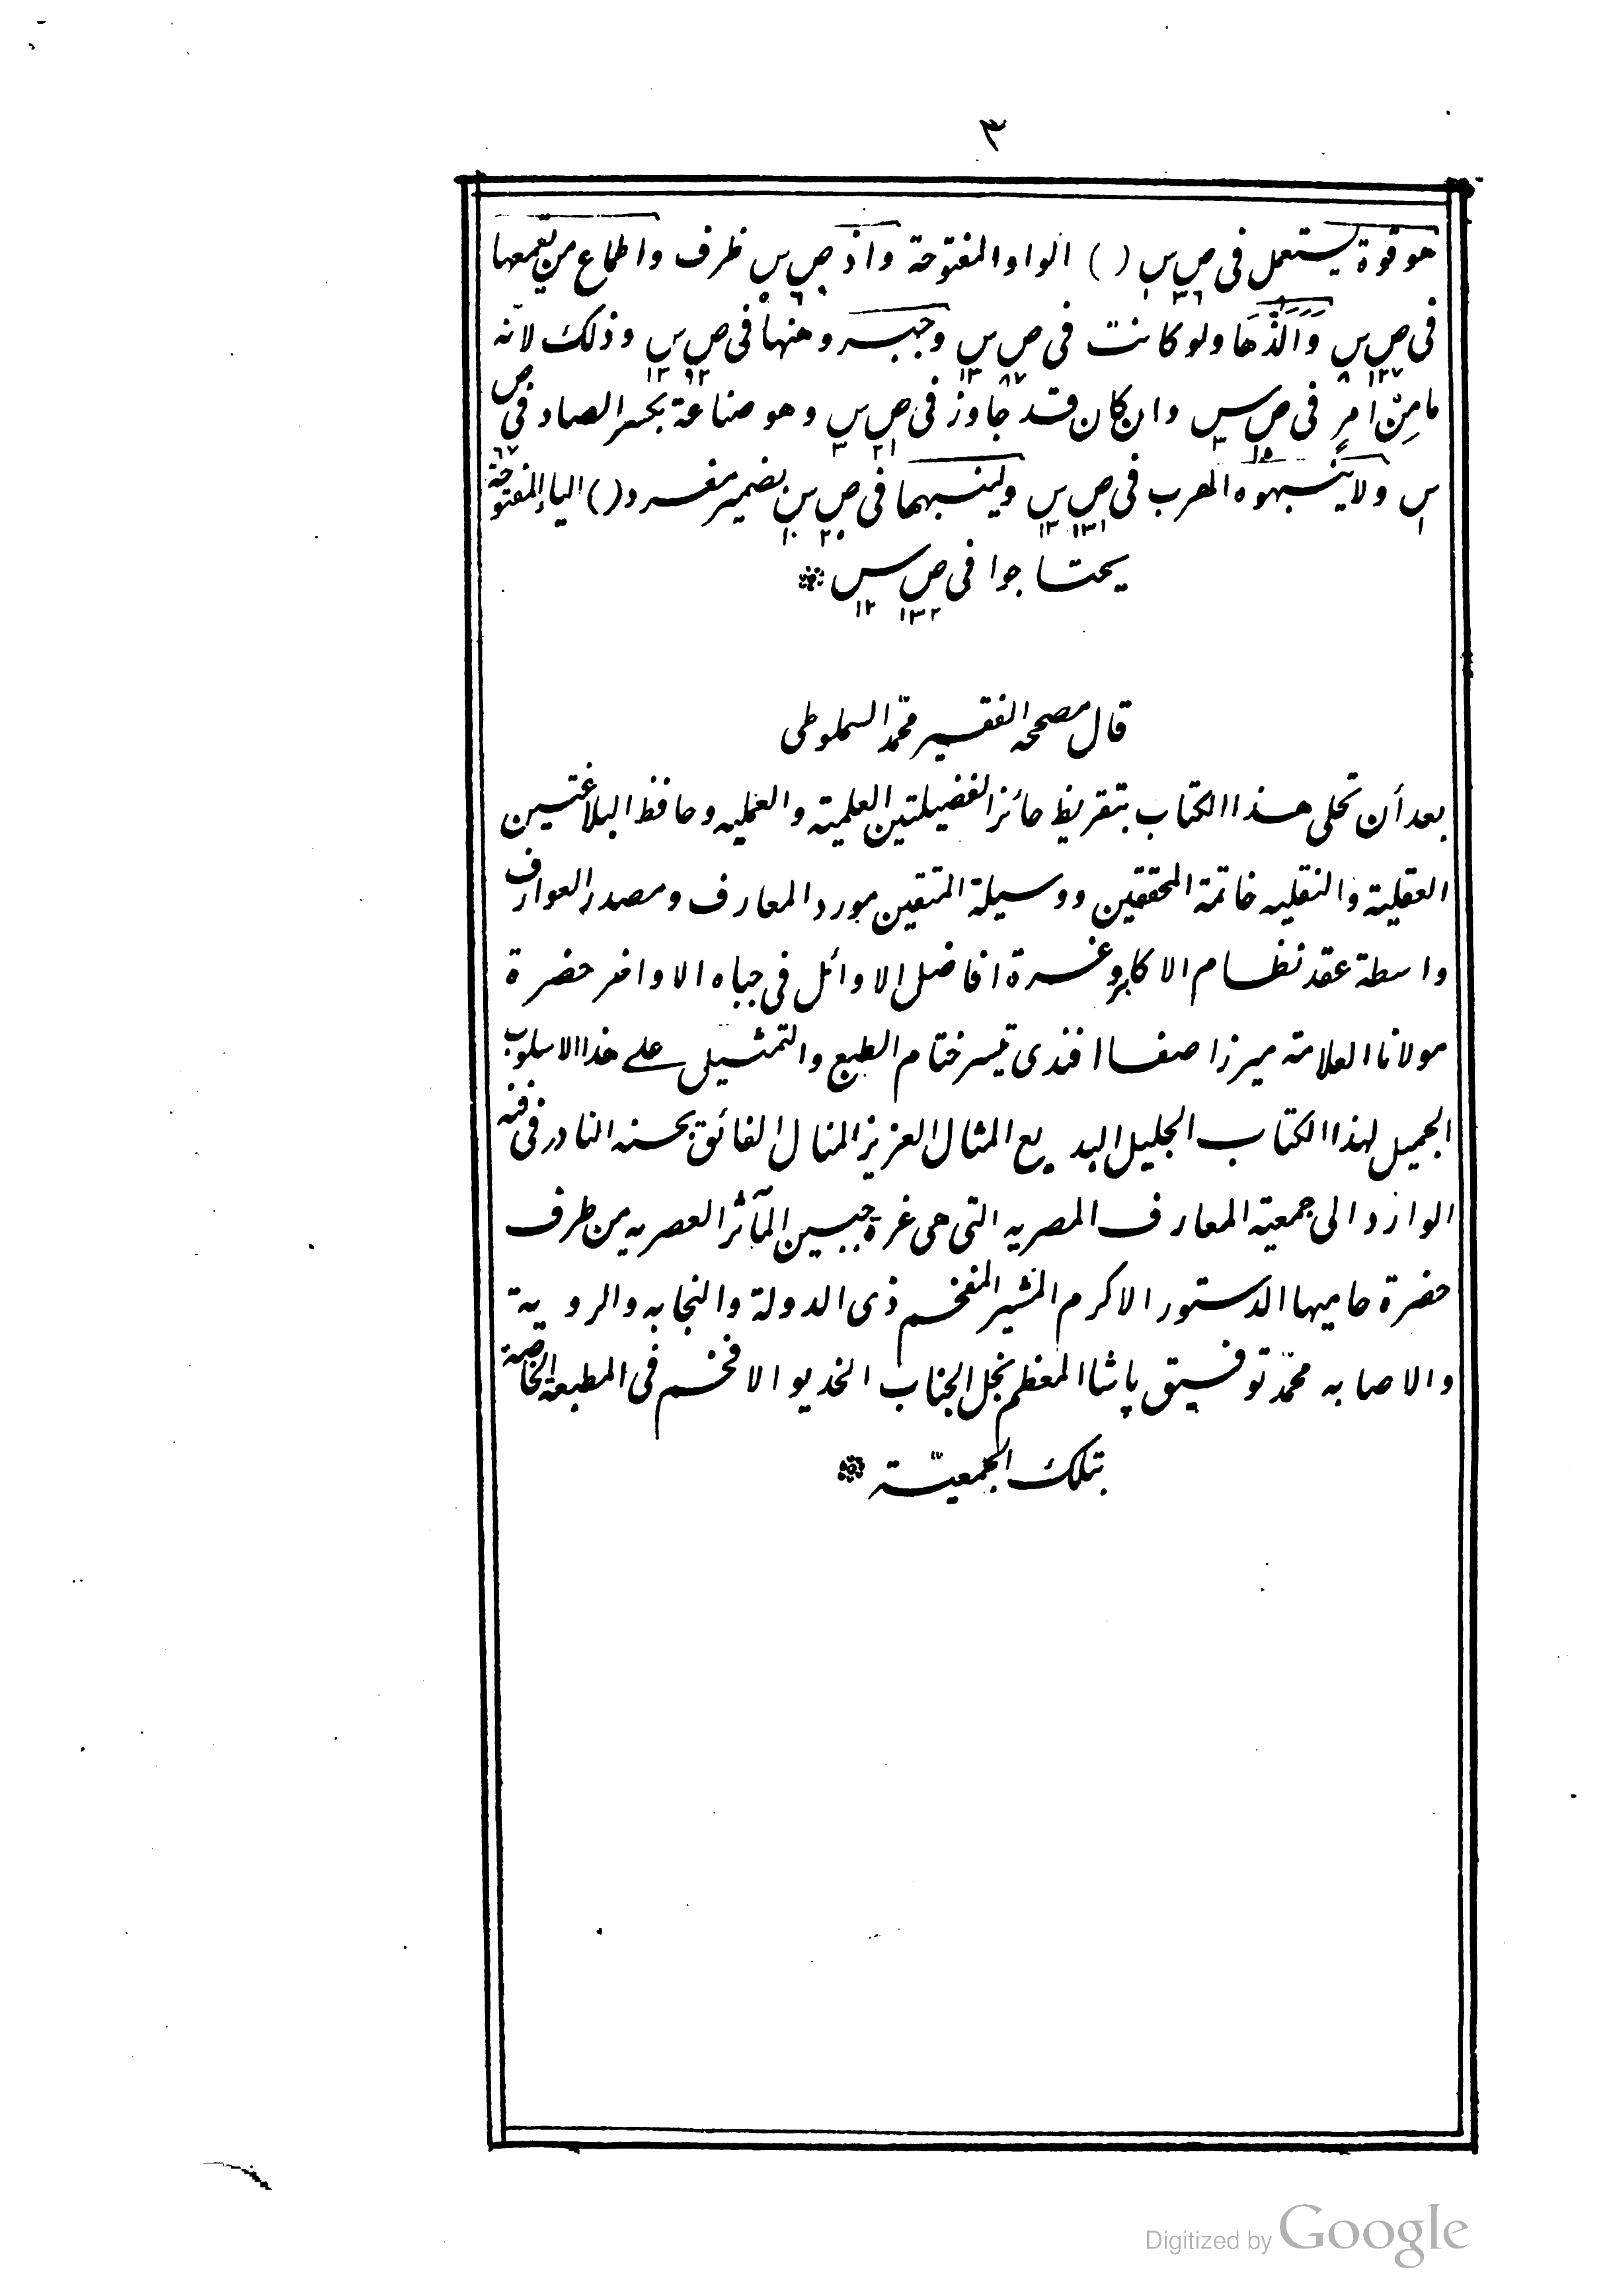 ٣
هو قوة يستعمل فى ص ٣٦ س ١ ( ) الواو المفتوحة واذ ص ٦٩ س ٥ ظرف واطماع من يقمعها
فى ص ١٢٧ س ٨ والذها ولو كانت فى ص ٨٧ س ١٣ وجبر وهنها فى ص ٩٢ س ١٢ وذلك لانّه
ما مِنْ امرٍ فى ص ١٥ س ٣ وان كان قد جاوز فى ص ٢١ س ٣ وهو صناعة بكسر الصاد فى ص ٦٧
س ١ ولا ينسبهوه الهرب فى ص ١٣١ س ١٣ ولينسبها فى ص ٢٥ س ١٠ بضمير مفرد ( ) الياء المفتوحة
يحتاجوا فى ص ١٣٢ س ١٢
قال مصححه الفقير محمّد السملوطى
بعد أن تحلى هذا الكتاب بتقريظ حائز الفضيلتين العلمية والعمليه وحافظ البلاغتين
العقلية والنقليه خاتمة المحققين ووسيلة المتقين مورد المعارف ومصدر العوارف
واسطة عقد نظام الاكابر وغرة افاضل الاوائل فى جباه الاواخر حضرة
مولانا العلامة ميرزا صفا افندى تيسر ختام الطبع والتمثيل على هذا الاسلوب
الجميل لهذا الكتاب الجليل البديع المثال العزيز المنال الفائق بحسنه النادر فى فنه
الوارد الى جمعية المعارف المصريه التى هى غرة جبين المآثر العصريه من طرف
حضرة حاميها الدستور الاكرم المشير المفخم ذى الدولة والنجابه والروية
والاصابه محمّد توفيق پاشا المعظم نجل الجناب الخديو الافخم فى المطبعة الخاصة
بتلك الجمعيّة
Digitized by Google